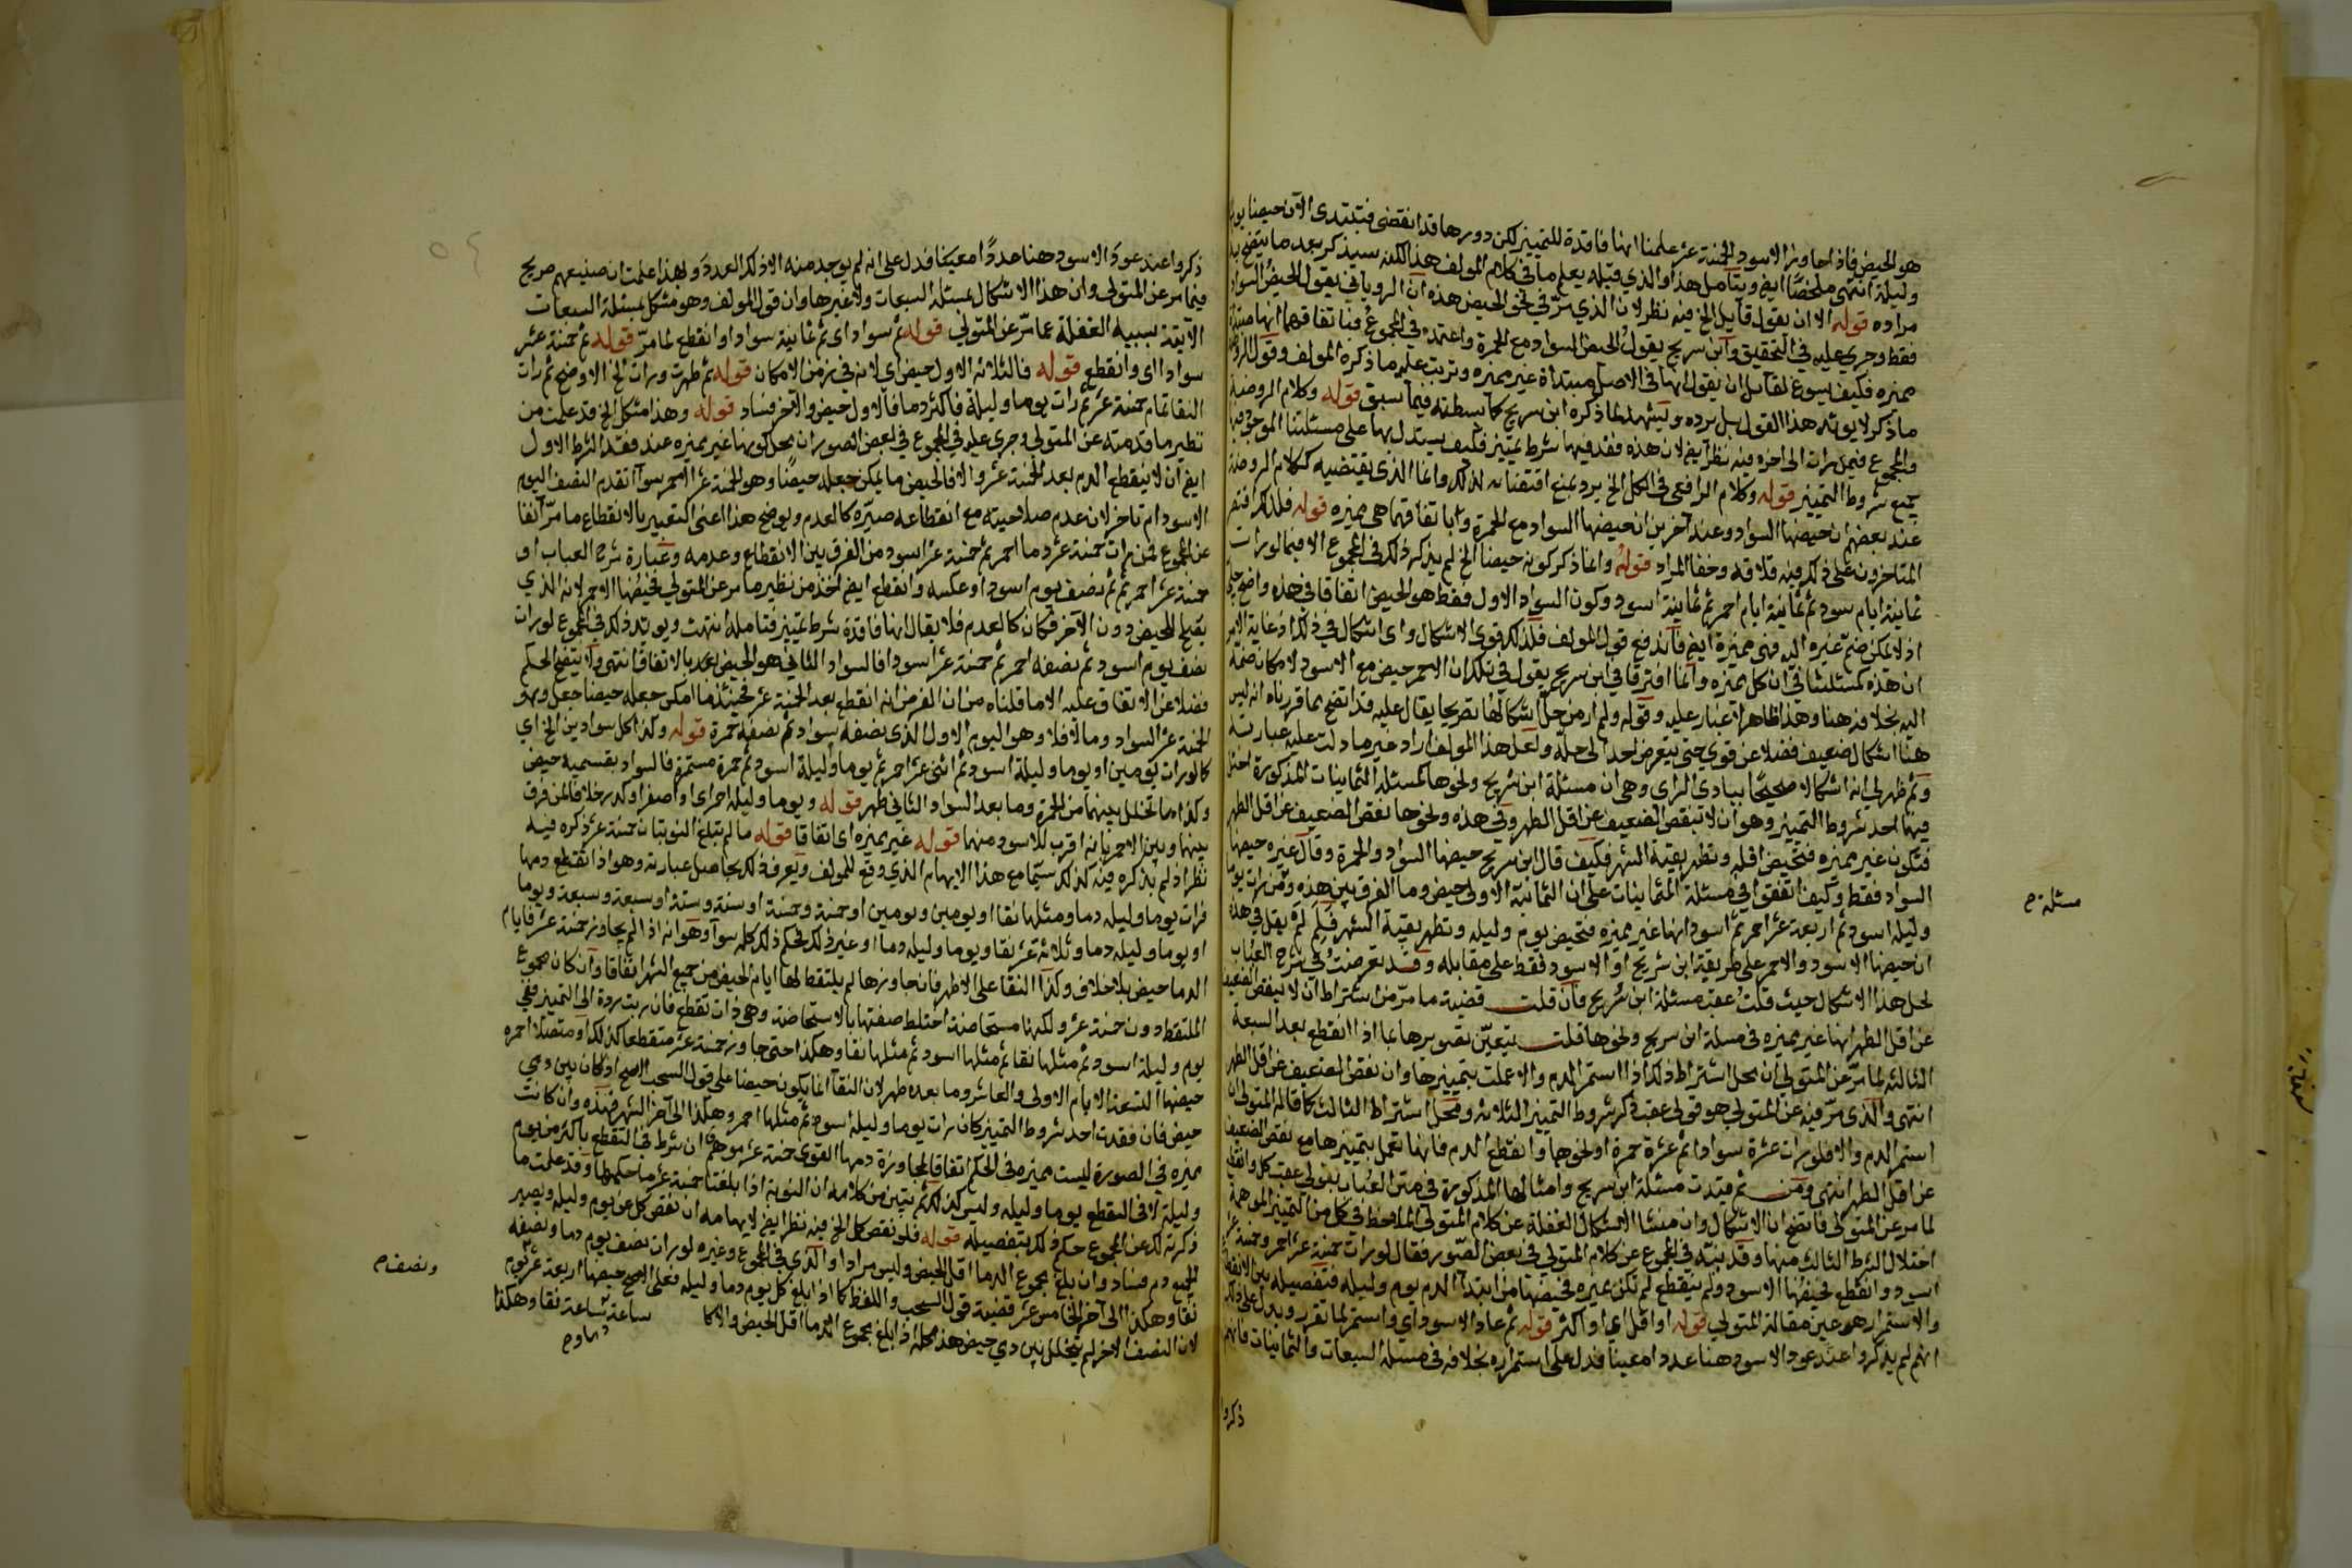 هو الحيض فاذا جاوز الاسود الخمسة عشر علمنا انها فاقدة للتمييز لكن دورها قد انقضى فتبتدى الآن حيضا يوما
وليلة انتهى ملخصا ايض ويتأمل هذا والذي قبله يعلم ما في كلام المولف هذا لكنه سيذكر بعد ما يتضح به
مراده قوله الا ان يقول قايل الخ فيه نظر لان الذي مر في نحو الحيض هذه ان الروياني يقول الحيض السواد
فقط وجرى عليه في التحقيق وابن سريج يقول الحيض السواد مع الحمرة واعتمده في المجموع فبا تفاقهما انها مبتداة
مميزه فكيف يسوغ لقايل ان يقول انها في الاصل مبتداة غير مميزه وترتب عليه ما ذكره المولف وقول الروياني
ما ذكر لا يويد هذا القول بل يرده ويشهد لما ذكره ابن سريج كما بسطته فيما سبق قوله وكلام الروضة
والمجموع فيمن رات الى اخره فيه نظر ايض لان هذه فقد فيها شرط تمييز فكيف يستدل بها على مسئلتنا الموجود فيها
جميع شروط التمييز قوله وكلام الرافعي في الكل الخ يرد بمنع اقتضائه لذلك وانما الذي يقتضيه ككلام الروضة
عند بعضهم ان حيضها السواد وعند آخرين ان حيضها السواد مع الحمرة وباتفاقهما هي مميزه قوله فلذلك اقتصر
المتاخرون على ذكر فيه قلاقه وخفا المراد قوله وانما ذكر كونه حيضا الخ لم يذكر ذلك في المجموع الا فيما لو رات
ثمانية ايام سود ثم ثمانية ايام احمر ثم ثمانية اسود وكون السواد الاول فقط هو الحيض اتفاقا في هذه واضح جلي
اذ لا يمكن ضم غيره اليه فهي مميزة ايض فاندفع قول المولف فلذلك قوى الاشكال واى اشكال في ذلك اذ غاية الامر
ان هذه كمسئلتنا في ان كل مميزه وانما افترقا في ان ابن سريج يقول في تلك ان الاحمر حيض مع الاسود لامكان ضمه
اليه بخلافه هنا وهذا ظاهر لا غبار عليه وقوله ولم ار من حل اشكالها تصريحا يقال عليه قد اتضح بما قررناه انه ليس
هنا اشكال ضعيف فضلا عن قوي حتى يتعرض احد الى حله ولعل هذا المولف اراد غير ما دلت عليه عبارته
وثم ظهر لي انه اشكالا صحيحا ببادى الراى وهي ان مسئلة ابن سريج ونحوها كمسئلة الثمانينات المذكورة اختل
فيها احد شروط التمييز وهو ان لا ينقص الضعيف عن اقل الطهر وفي هذه ونحوها نقص الضعيف عن اقل الطهر
فتكون غير مميزه فتحيض اقله وتطهر بقية الشهر فكيف قال ابن سريج حيضها السواد والحمرة وقال غيره حيضها
السواد فقط وكيف اتفقوا في مسئلة الثمانينات على ان الثمانية الاولى حيض وما الفرق بين هذه ومن رات يوما
وليله اسود ثم اربعة عشر احمر ثم اسود انها غير مميزه فتحيض يوم وليله وتطهر بقية الشهر فلم لم يقل في هذه
ان حيضها الاسود والاحمر على طريقة ابن سريج او الاسود فقط على مقابله وقد تعرضت في شرح العباب
لحل هذا الاشكال حيث قلت عقب مسئلة ابن سريج وان قلت قضية ما مر من اشتراط ان لا ينقص الضعيف
عن اقل الطهر انها غير مميزه في مسئلة ابن سريج ونحوها قلت يتعين تصويرها بما اذا انقطع بعد السبعة
الثالثة لما مر عن المتولي ان محل اشتراط ذلك اذا استمر الدم والا عملت بتمييزها وان نقص الضعيف عن اقل الطهر
انتهى والذى مر فيه عن المتولي هو قولي عقب ذكر شروط التمييز الثلاثه ومحل اشتراط الثالث كما قاله المتولي ان
استمر الدم والا فلو رات عشرة سوادا ثم عشرة حمرة او نحوها وانقطع الدم فانها تعمل بتمييزها مع نقص الضعيف
عن اقل الطهر انتهى ومن ثم قيدت مسئلة ابن سريج وامثالها المذكورة في متن العباب بقولي عقب كل وانقطع
لما مر عن المتولي فاتضح ان الاشكال وان منشا الاشكال الغفلة عن كلام المتولي الملاحظ في كل من التمييز الموهمة
اختلال الشرط الثالث منها وقد بنته في المجموع عن كلام المتولي في بعض الصور فقال لو رات خمسة عشر احمر وخمسة عشر
اسود وانقطع فحيضها الاسود ولم ينقطع لم تكن غيره فحيضها من ابتدا الدم يوم وليله فتفصيله بين الانقطاع
والاستمرار هو عين مقالة المتولي قوله او اقل اى او اكثر قوله ثم عاد الاسود اي واستمر لما تقرر ويدل على ذلك
انهم لم يذكروا عند عود الاسود هنا عددا معينا فدل على استمراره بخلافه في مسئلة السبعات والثمانينات فانهم
ذكروا
مسئلة صح
ذكروا عند عود الاسود هنا عددا معينا فدل على انه لم يوجد منه الا ذلك العدد وبهذا علمت ان صنيعهم صريح
فيما مر عن المتولي وان هذا الاشكال بمسئلة السبعات ولا غيرها وان قول المولف وهو مشكل بمسئلة السبعات
الآتية سببه الغفلة عما مر عن المتولي قوله ثم سواد اى ثم ثمانية سواد او انقطع لما مر قوله ثم خمسة عشر
سوادا اى وانقطع قوله فالثلاثة الاول حيض اى لانه في زمن الامكان قوله ثم طهرت ورات الخ الاوضح ثم رات
النقا تمام خمسة عشر ثم رات يوما وليلة فاكثر دما فالاول حيض والآخر فساد قوله وهذا مشكل الخ قد علمت من
نظير ما قدمته عن المتولي وجرى عليه في المجموع في بعض الصور ان محل كونها غير مميزه عند فقد الشرط الاول
ايض ان لا ينقطع الدم بعد الخمسة عشر والا فالحيض ما يمكن جعله حيضا وهو الخمسة عشر الاحمر سوا تقدم النصف اليوم
الاسود ام تاخر لان عدم صلاحيته مع انقطاعه صيره كالعدم ويوضح هذا اعني التعبير بالانقطاع ما مر آنفا
عن المجموع فمن رات خمسة عشر دما احمر ثم خمسة عشر اسود من الفرق بين الانقطاع وعدمه وعبارة شرح العباب او
خمسة عشر احمر ثم نصف يوم اسود او عكسه وانقطع ايض اخذ من نظير ما مر عن المتولي فحيضها الاحمر لانه الذي
يقع للحيض دون الآخر فكان كالعدم فلا يقال انها فاقدة شرط تمييز فتامله انتهت ويويد ذلك في المجموع لو رات
نصف يوم اسود ثم نصفه احمر ثم خمسة عشر اسود فالسواد الثاني هو الحيض بعد بالاتفاق انتهى ولا يتضح الحكم
فضلا عن الاتفاق عليه الا ما قلناه من ان الفرض انه انقطع بعد الخمسة عشر فحينئذ ما امكن جعله حيضا جعل وهو
الخمسة عشر السواد وما لا فلا وهو اليوم الاول الذى نصفه سواد ثم نصفه حمرة قوله وكذا كل سوادين الخ اي
كما لو رات يومين او يوما وليلة اسود ثم اثنى عشر احمر ثم يوما وليلة اسود ثم حمرة مستمرة فالسواد بقسميه حيض
وكذا ما تخلل بينهما من الحمرة وما بعد السواد الثاني طهر قوله ويوما وليله احمر اى او اصفر او كدر خلافا لمن فرق
بينها وبين الاحمر بانه اقرب للاسود منها قوله غير مميزه اى اتفاقا قوله ما لم تبلغ النوبتان خمسة عشر ذكره فيه
نظر اذ لم يذكره فيه كذلك سيما مع هذا الايهام الذي وقع للمولف ويعرف ذلك بحاصل عبارته وهو اذا تقطع دمها
فرات يوما وليله دما ومثلها نقا او يومين ويومين او خمسة وخمسة او ستة وستة او سبعة وسبعة ويوما
او يوما وليله دما وثلاثة عشر نقا ويوما وليله دما او غير ذلك فحكم ذلك كله سوا وهو انه اذا لم يجاوز خمسة عشر فايام
الدما حيض بلا خلاف وكذا النقا على الاظهر فان جاوزها لم يلتقط لها ايام الحيض من جميع الشهر اتفاقا وان كان مجموع
الملتقط دون خمسة عشر ولكنها مستحاضة اختلط صفتها بالاستحاضة وهي ذات تقطع فان ربت ردة الى التمييز ففي
يوم وليلة اسود ثم مثلها نقا ثم مثلها اسود ثم مثلها نقا وهكذا حتى جاوز خمسة عشر متقطعا كذلك او متصلا احمره
حيضها التسعة الايام الاولى والعاشر وما بعده طهر لان النقا انما يكون حيضا على قول السحب الاصح اذ كان بين دمي
حيض فان فقدت احد شروط التمييز كان رات يوما وليله اسود ثم مثلها احمر وهكذا الى آخر الشهر فهذه وان كانت
مميزه في الصورة ليست مميزه في الحكم اتفاقا لمجاوزة دمها القوى خمسة عشر موهم ان شرط في التقطع باكثر من يوم
وليلة لا في التقطع يوما وليله وليس كذلك ثم يتبين من كلامه ان النوبة اذا بلغتا خمسة عشر ما حكمها وقد علمت ما
ذكرته لك عن المجموع حكم ذلك بتفصيله قوله فلو نقص كل الخ فيه نظر ايض لايهامه ان نقص كل عن يوم وليله ويصير
للجميع دم فساد وان بلغ مجموع الدما اقل الحيض وليس مرادا والذى في المجموع وغيره لو رات نصف يوم دما ونصفه
نقا وهكذا الى آخر الخامس عشر قضية قول السحب واللفظ كما اذا بلغ كل يوم دما وليله فعلى الاصح حيضها اربعة عشر يوم
لان النصف الاخر لم يتخلل بين دمي حيض هذا محله اذا بلغ مجموع الدما اقل الحيض والا كا ساعة ساعة نقا وهكذا
ونصف صح
دما وصح